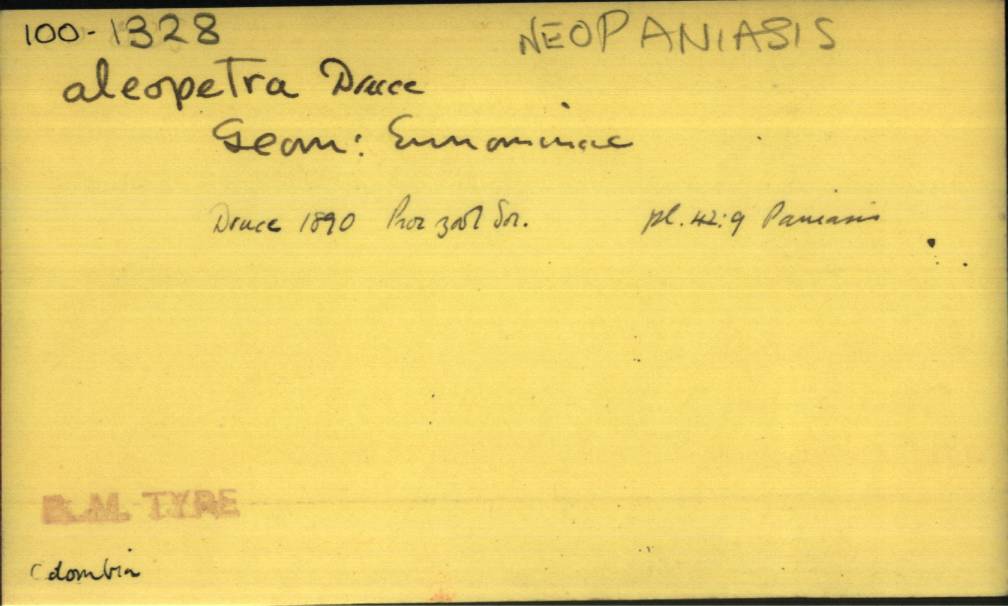 100-1328 NEOPANIASIS
aleopetra Druce
Geom: Ennominae
Druce 1890 Proc zool Soc. pl. 42:9 Paniasis
B.M. TYPE
Colombia